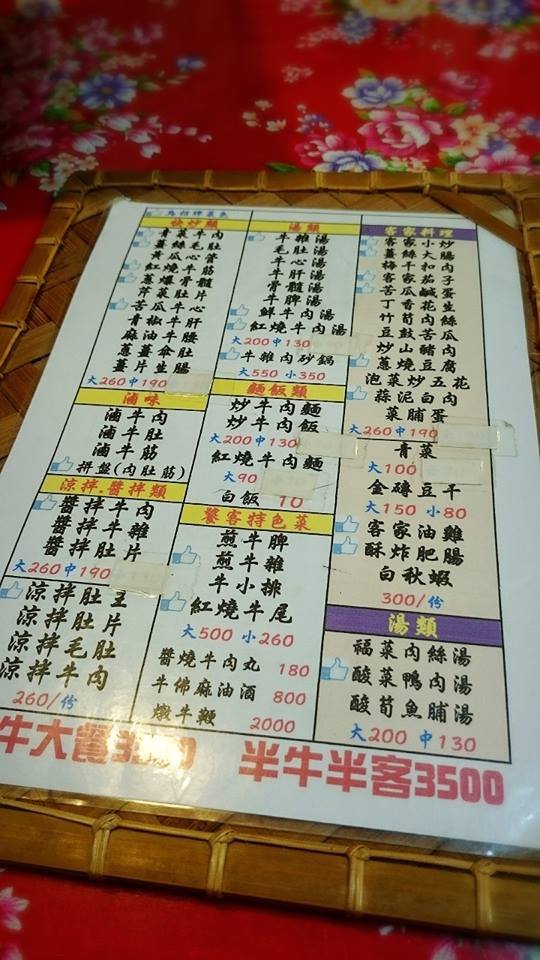 為招牌菜色
快炒類
青菜牛肉
薑絲毛肚
黃瓜心管
紅燒牛筋
蔥爆骨髓
芹菜肚片
苦瓜牛心
青椒牛肝
麻油牛腰
蔥薑傘肚
薑片生腸
大260中190
滷味
滷牛肉
滷牛肚
滷牛筋
拼盤(肉肚筋)
涼拌.醬拌類
醬拌牛肉
醬拌牛雜
醬拌肚片
大260中190
涼拌肚片
涼拌毛肚
涼拌牛肉
260/份
湯類
牛雜湯
毛肚湯
牛心湯
牛肝湯
骨髓湯
牛脾湯
鮮牛肉湯
紅燒牛肉湯
大200中130
牛雜肉砂鍋
大550 小350
麵飯類
炒牛肉麵
炒牛肉飯
大200中130
紅燒牛肉麵
大90
白飯 10
饕客特色菜
煎牛脾
煎牛雜
牛小排
紅燒牛尾
大500 小260
醬燒牛肉丸 180
牛佛麻油酒 800
燉牛鞭 2000
客家料理
客家小炒
薑絲大腸
梅干扣肉
客家茄子
苦瓜鹹蛋
丁香花生
竹筍肉絲
豆鼓苦瓜
炒山豬肉
蔥燒豆腐
泡菜炒五花
蒜泥白肉
菜脯蛋
大260中190
青菜
大100
金磚豆干
大150 小80
客家油雞
酥炸肥腸
白秋蝦
300/份
湯類
福菜肉絲湯
酸菜鴨肉湯
酸筍魚脯湯
大200 中130
牛大餐
半牛半客3500